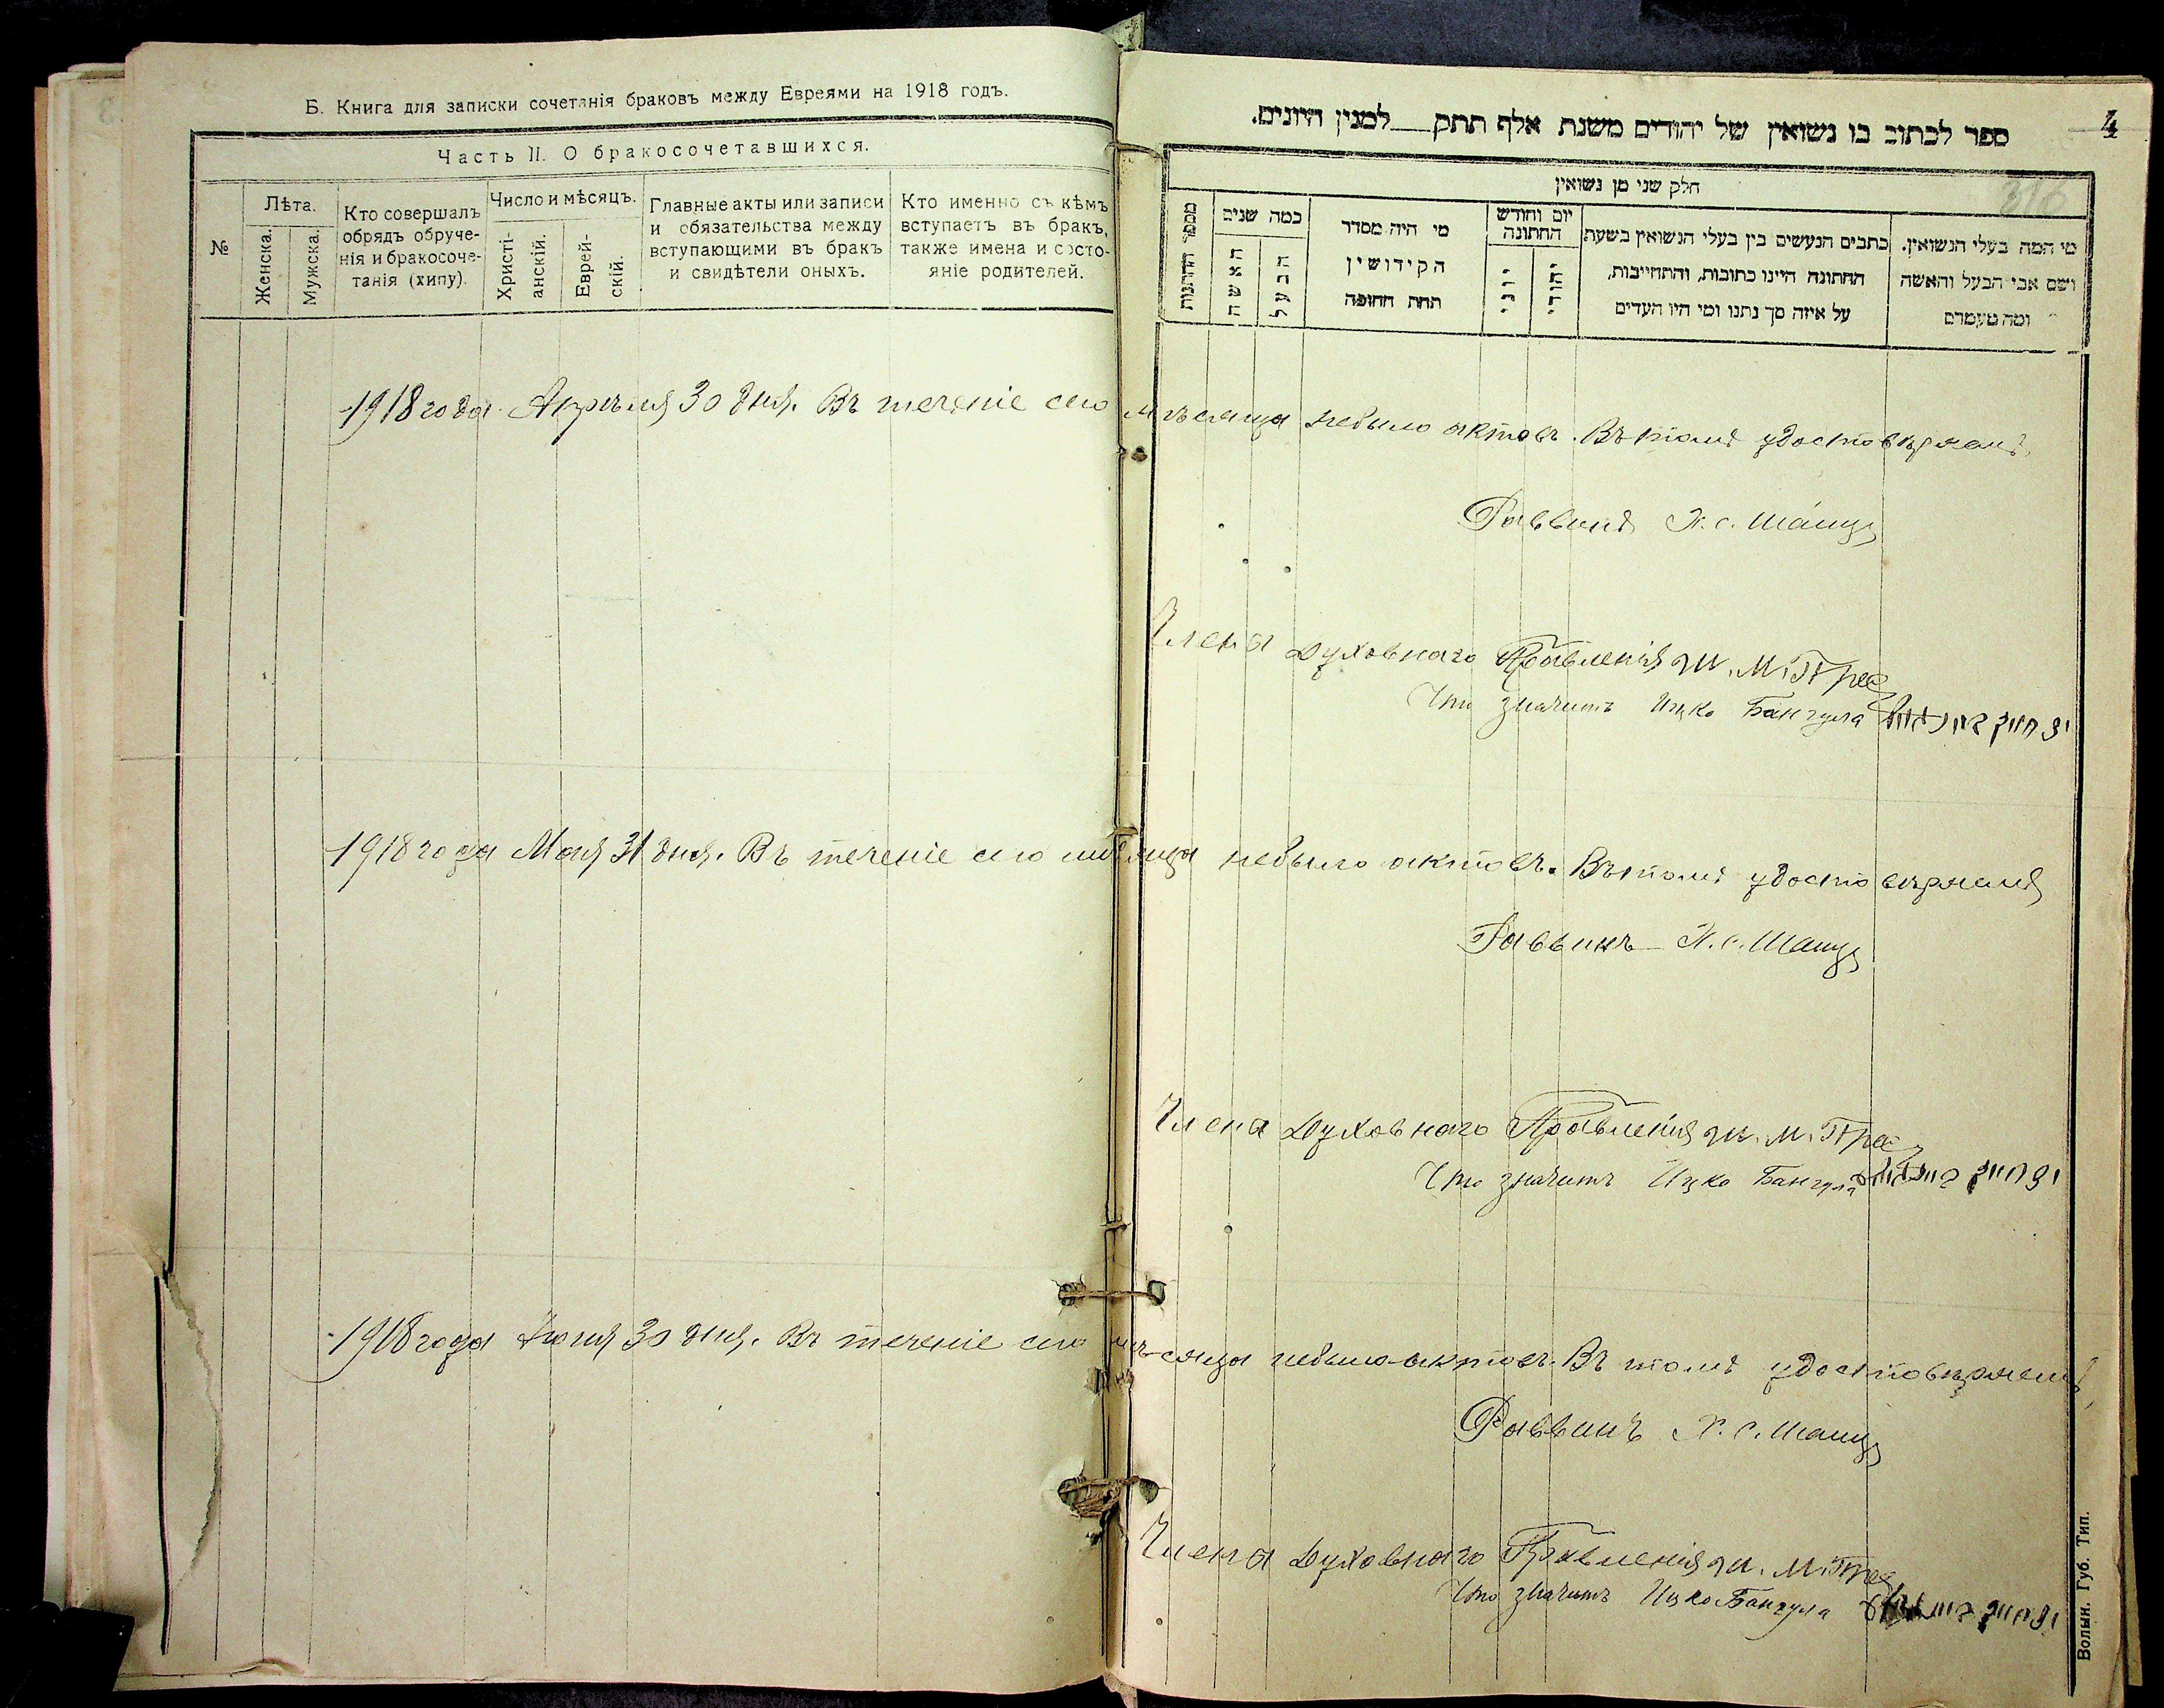 Б. Книга для записки сочетанія браковъ между Евреями на 1918 годъ.
Часть II. О бракосочетавшихся.
№
Лѣта.
Женска.
Мужска.
Кто совершалъ
обрядъ обруче-
нія и бракосоче-
танія (хипу).
Число и мѣсяцъ.
Христі-
анскій.
Еврей-
скій.
Главные акты или записи
и обязательства между
вступающими въ бракъ
и свидѣтели оныхъ.
Кто именно съ кѣмъ
вступаетъ въ бракъ,
также имена и состо-
яніе родителей.
4
316
ספר לכתוב בו נשואין של יהודים משנת אלף תתק___למנין היונים.
חלק שני מן נשואין
מספר החתונות
כמה שנים
האשה
הבעל
מי היה מסדר
הקידושין
תחת החופה
יום וחודש
החתונה
יוני
יהודי
כתבים הנעשים בין בעלי הנשואין בשעת
החתונה היינו כתובות, והתחייבות,
על איזה סך נתנו ומי היו העדים
מי המה בעלי הנשואין.
ושם אבי הבעל והאשה
ומה מעמדם
1918 года Апрѣля 30 дня. Въ теченіе сего мѣсяца небыло актовъ. Въ томъ удостовѣряемъ
Раввинъ Х. С. Шанц
Члена Духовнаго Правленія М.
Что значитъ Ицко Бангула
1918 года Мая 31 дня. Въ теченіе сего мѣсяца небыло актовъ. Въ томъ удостовѣряемъ
Раввинъ Х. С. Шанц
Члена Духовнаго Правленія М.
Что значитъ Ицко Бангула
1918 года Іюня 30 дня. Въ теченіе сего мѣсяца небыло актовъ. Въ томъ удостовѣряемъ
Раввинъ Х. С. Шанц
Члена Духовнаго Правленія М.
Что значитъ Ицко Бангула
Волын. Губ. Тип.